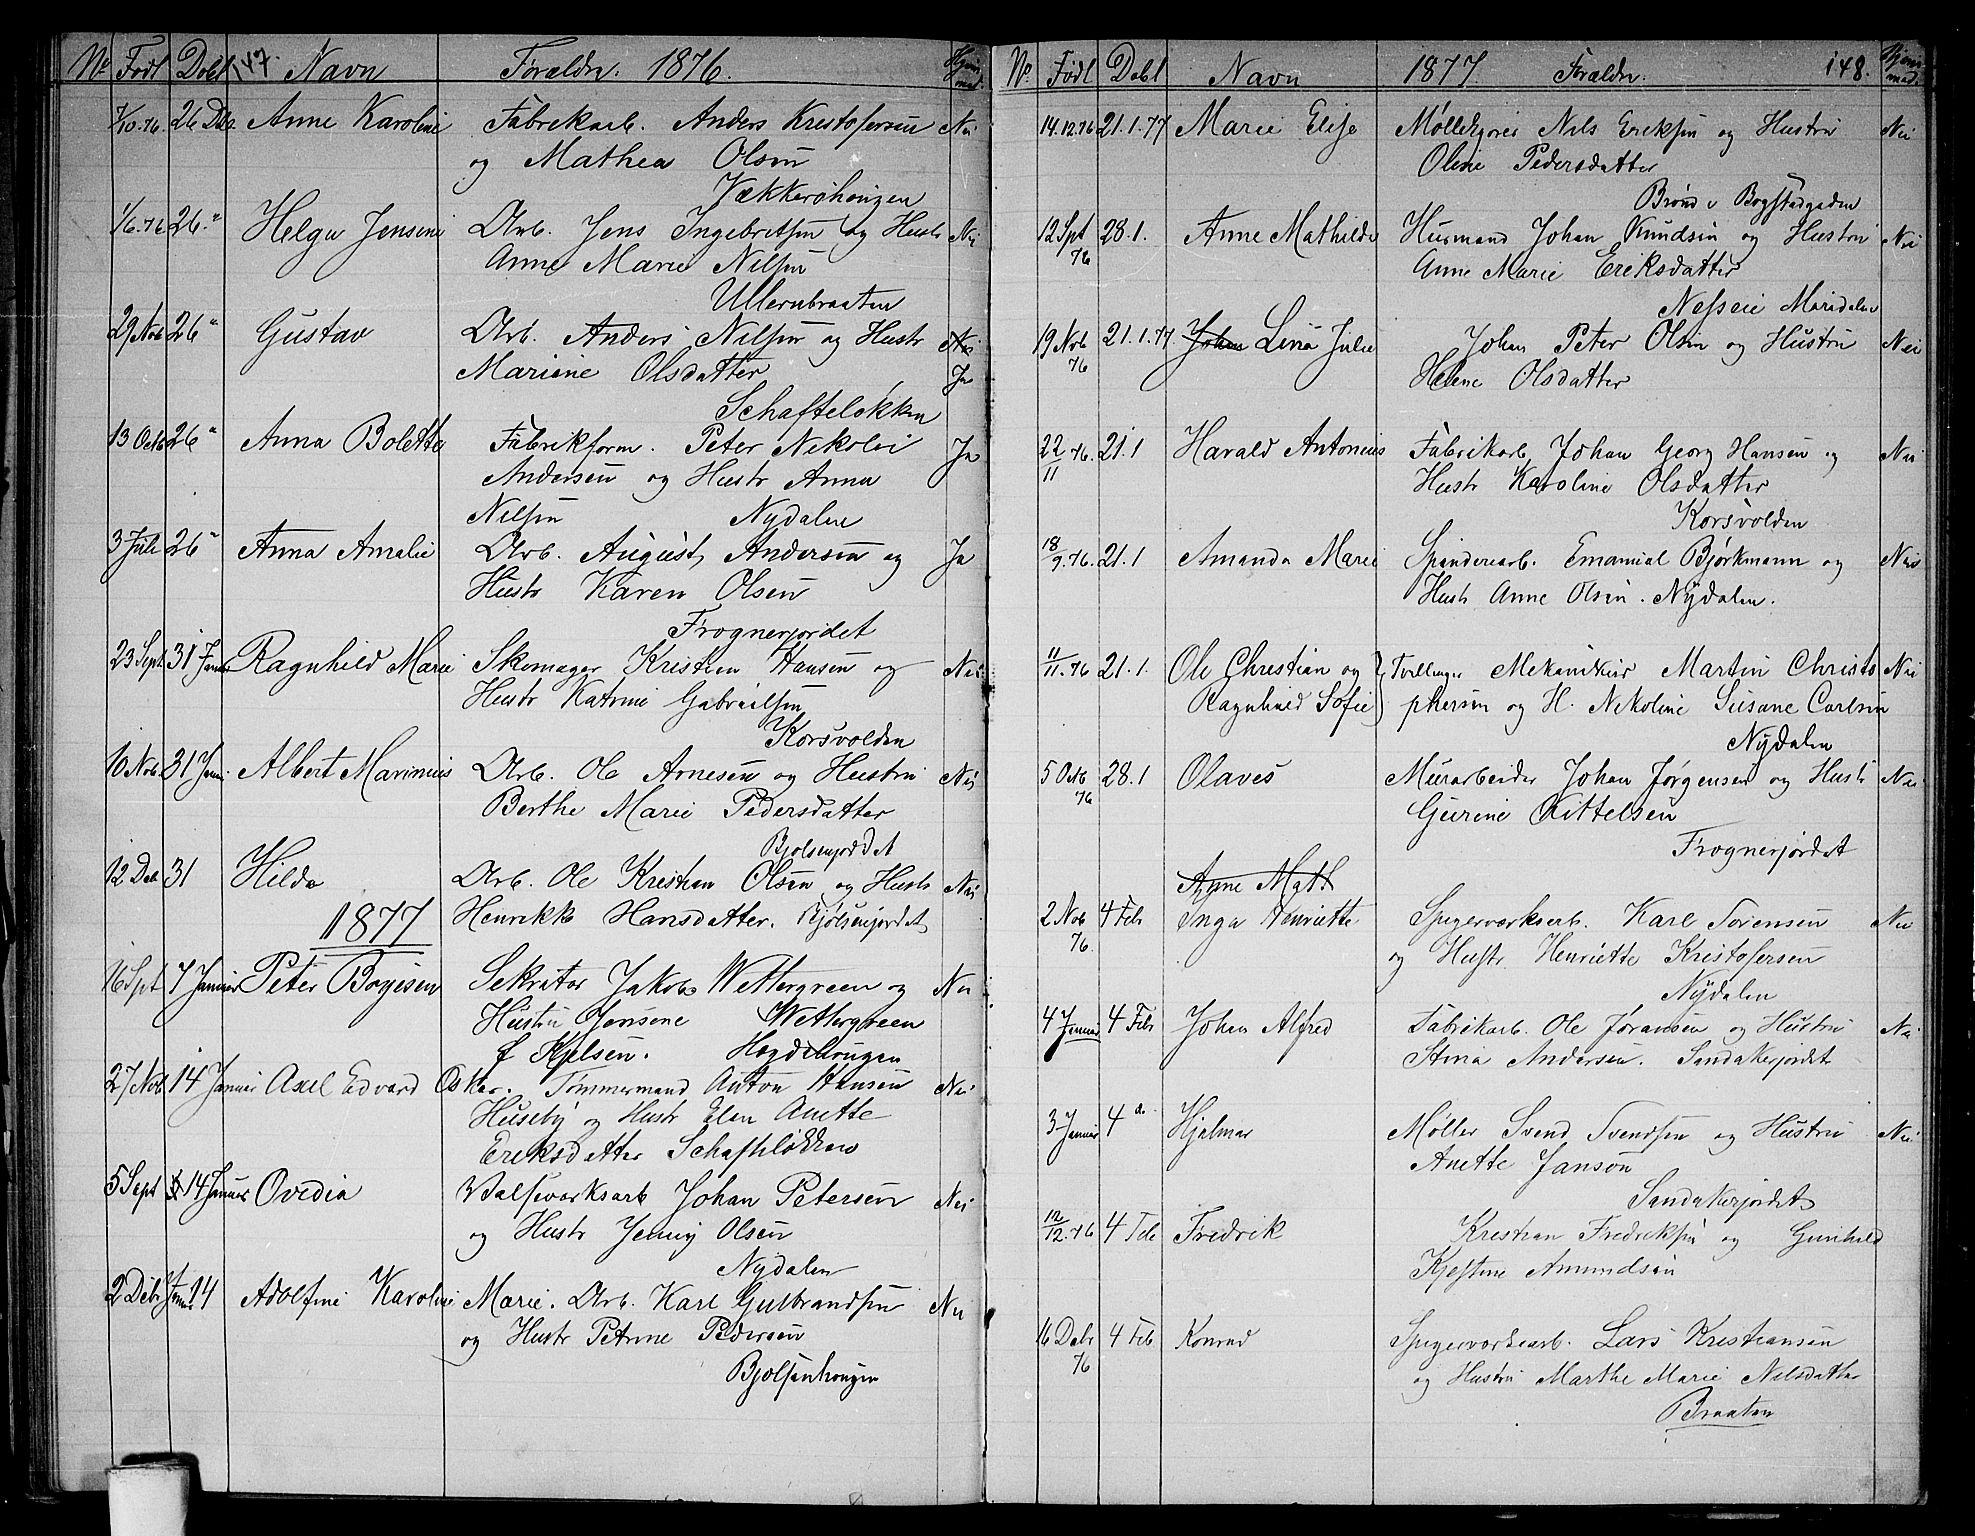 No Født Døbt 147. Navn Forældre. 1876. Hjem
med.
7/10.76 26 Dbr Anne Karoline Fabrikarb. Anders Kristofersen Nei
og Mathea Olsen
Vækkerøhougen
1/6.76 26 " Helga Jensine Arb. Jens Ingebretsen og Hustr Nei
Anne Marie Nilsen
Ullernbraaten
29 Nob 26 " Gustav Arb. Anders Nilsen og Hustr Nei
Mariene Olsdatter Ja
Schafteløkken
13 Octb 26 " Anna Bolette Fabrikform. Peter Nikolai Ja
Andersen og Hustr Anna
Nilsen Nydalen
3 Juli 26 " Anna Amalie Arb. August Andersen og Ja
Hustr Karen Olsen
Frognerjordet
23 Sept 31 Januar Ragnhild Marie Skomager Kristian Hansen og Nei
Hustr Katrine Gabrielsen
Korsvolden
10 Nob 31 Janu Albert Marinius Arb. Ole Arnesen og Hustru Nei
Berthe Marie Pedersdatter
Bjølsenjordet
12 Deb 31 Hilda Arb. Ole Kristian Olsen og Hustr Nei
1877 Henrikke Hansdatter. Bjølsenjordet
16 Spt 7 Januar Peter Boyesen Sekretær Jakob Wettergreen og Nei
Hustru Jensene Wettergreen
f Kjelsen. Hægdehougen
27 Nob 14 Januar Axel Edvard Oskar. Tømmermand Anton Hansen Nei
Huseby og Hustr Elen Anette
Eriksdatter Schafteløkken
5 Sept 14 Januar Ovedia Valseværksarb Johan Petersen Nei
og Hustr Jenny Olsen
Nydalen
2 Debr Janu. 14 Adolfine Karoline Marie. Arb. Karl Gulbrandsen Nei
og Hustr Petrine Pedersen
Bjølsenhougen
No. Født Døbt Navn 1877 Forældre. 148. Hjem
med.
14.12.76 21.1.77 Marie Elise Møllebører Nils Eriksen og Hustru Nei
Olene Pedersdatter
Brønd v Bogstadgaden
12 Spt 28.1. Anne Mathilde Husmand Johan Knudsen og Hustru Nei
76 Anne Marie Eriksdatter
Nesseie Maridalen
19 Nob 21.1.77 Johan Lina Julie Johan Peter Olsen og Hustru Nei
76 Helene Olsdatter
22/11 76. 21.1 Harald Antonius Fabrikarb Johan Georg Hansen og Nei
Hustr Karoline Olsdatter
Korsvolden
18/9.76. 21.1 Amanda Marie Spinderearb. Emanuel Bjørkmann og Nei
Hustr Anne Olsen. Nydalen.
11/11.76 21.1. Ole Christian og } Tvillinger Mekanikus Martin Christo Nei
Ragnhild Sofie } phersen og H. Nikoline Susane Carlsen
Nydalen
5 Octb 28.1 Olaves Murarbeider Johan Jørgensen og Hustr Nei
76 Gurine Kittelsen
Frognerjordet
Anne Math
2 Nob 4 Feb Inga Henriette Spigerværksarb. Karl Sørensen Nei
76. og Hustr Henriette Kristofersen
Nydalen
4 Januar 4 Feb Johan Alfred Fabrikarb. Ole Jøransen og Hustru Nei
Stina Andersen. Sandakerjordet
3 Januar 4 do Hjalmar Møller Svend Svendsen og Hustru Nei
Anette Janson
Sandakerjordet
12/12.76 4 Feb Fredrik Kristian Fredriksen og Gunhild
Kjestine Amundsen
16 Debr 4 Feb Konrad Spigerværksarb. Lars Kristiansen
76 og Hustru Marthe Marie Nilsdatter
Braaten